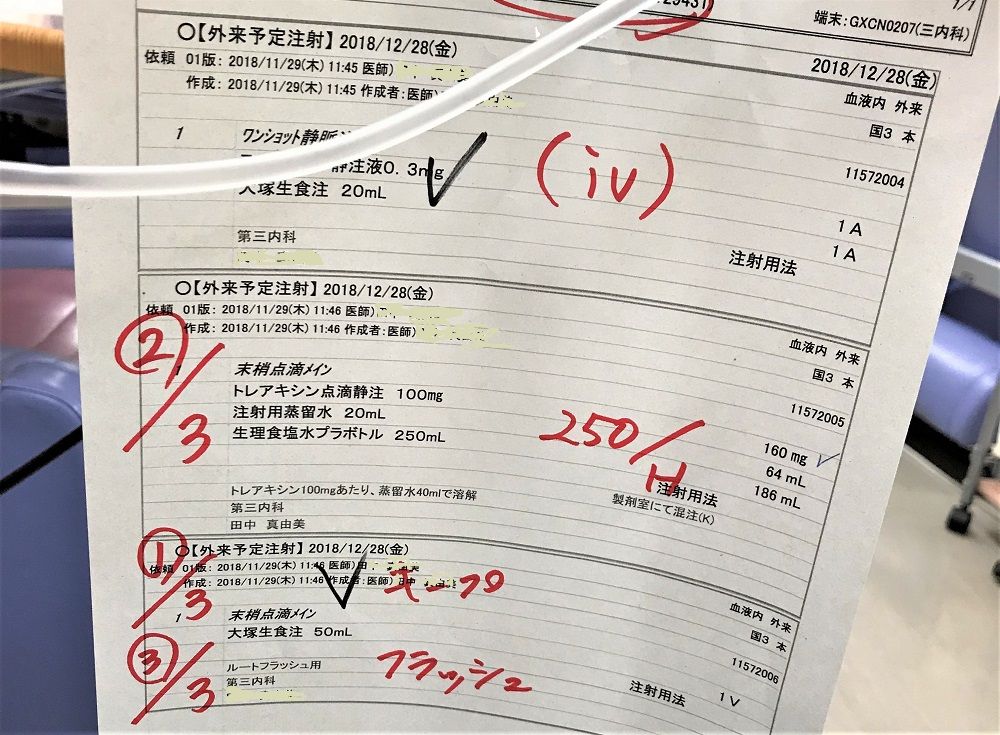 29431
1/1
端末:GXCN0207(三内科)
〇【外来予定注射】2018/12/28(金)
2018/12/28(金)
依頼 01版: 2018/11/29(木) 11:45 医師)
血液内 外来
作成: 2018/11/29(木) 11:45 作成者:医師)
国3 本
1 ワンショット静脈
11572004
静注液0.3mg (iv)
1A
大塚生食注 20mL
1A
第三内科
注射用法
〇【外来予定注射】2018/12/28(金)
依頼 01版: 2018/11/29(木) 11:46 医師)
血液内 外来
作成: 2018/11/29(木) 11:46 作成者:医師)
国3 本
②/3
1 末梢点滴メイン
11572005
トレアキシン点滴静注 100mg
160mg
注射用蒸留水 20mL
64mL
生理食塩水プラボトル 250mL
186mL
250/H
注射用法
トレアキシン100mgあたり、蒸留水40mlで溶解
製剤室にて混注(K)
第三内科
田中 真由美
〇【外来予定注射】2018/12/28(金)
①/3
依頼 01版: 2018/11/29(木) 11:46 医師)田
血液内 外来
作成: 2018/11/29(木) 11:46 作成者:医師) 田中
国3 本
キープ
1 末梢点滴メイン
11572006
大塚生食注 50mL
1V
③/3
ルートフラッシュ用
フラッシュ
注射用法
第三内科